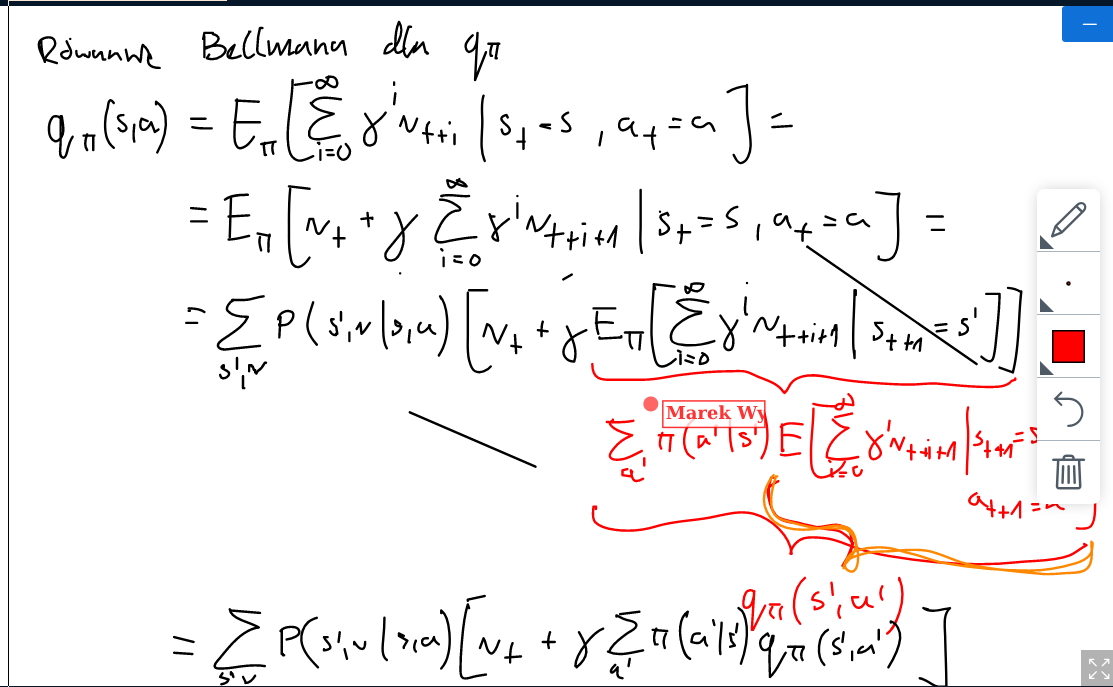 Równanie Bellmana dla qπ
qπ(s,a) = Eπ[∑_{i=0}^{∞} γ^i r_{t+i} | s_t = s, a_t = a] =
= Eπ[r_t + γ ∑_{i=0}^{∞} γ^i r_{t+i+1} | s_t = s, a_t = a] =
= ∑_{s',r} P(s',r|s,a)[r_t + γ Eπ[∑_{i=0}^{∞} γ^i r_{t+i+1} | s_{t+1} = s']]
Marek Wy
∑_{a'} π(a'|s') E[∑_{i=0}^{∞} γ^i r_{t+i+1} | s_{t+1} = s
a_{t+1} = ]
qπ(s',a')
= ∑_{s',r} P(s',r|s,a)[r_t + γ ∑_{a'} π(a'|s') qπ(s',a')]